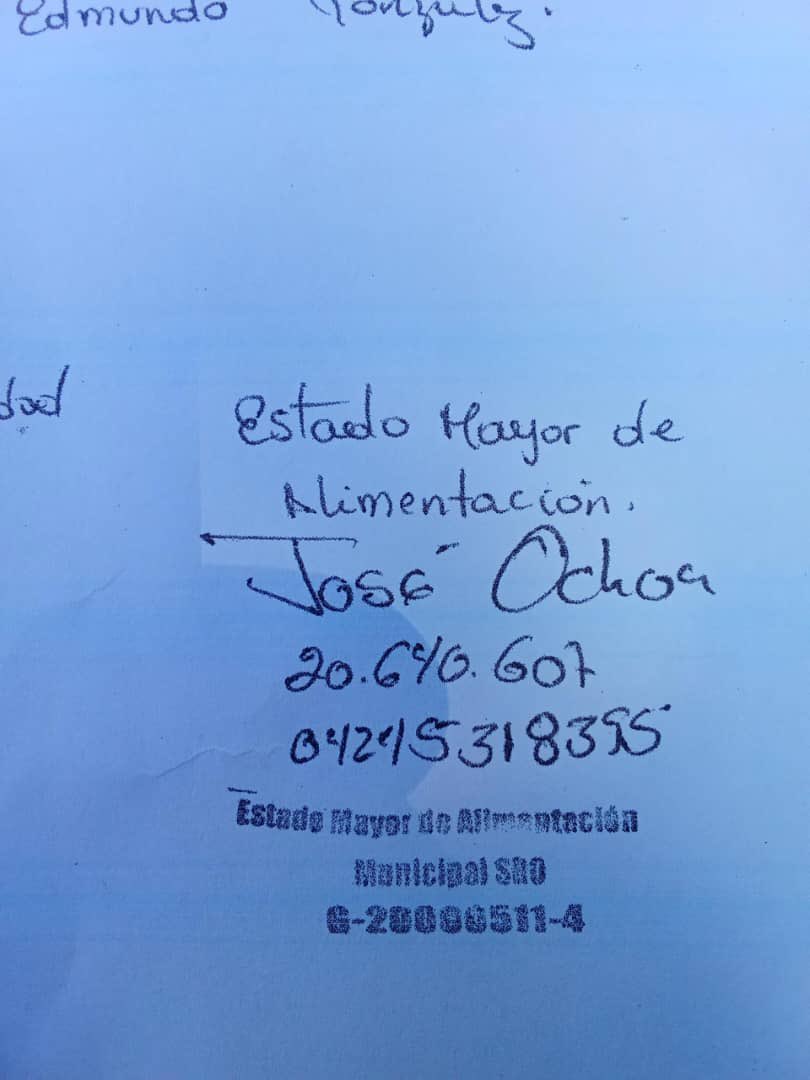 Edmundo González.
dad
Estado Mayor de
Alimentación.
José Ochoa
20.640.607
04245318355
Estado Mayor de Alimentación
Municipal SRO
G-20000511-4